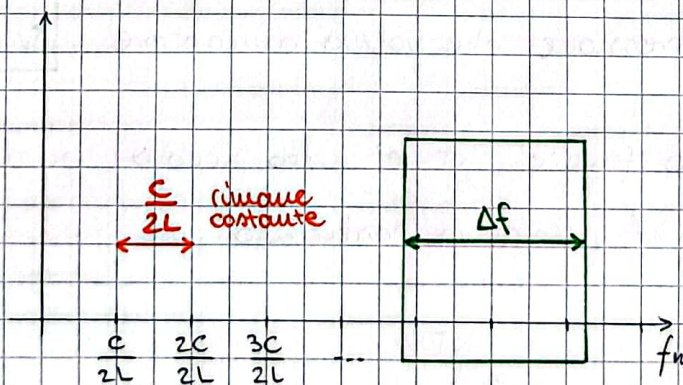 c/2L rimane
costante
Δf
c/2L 2c/2L 3c/2L ... fn